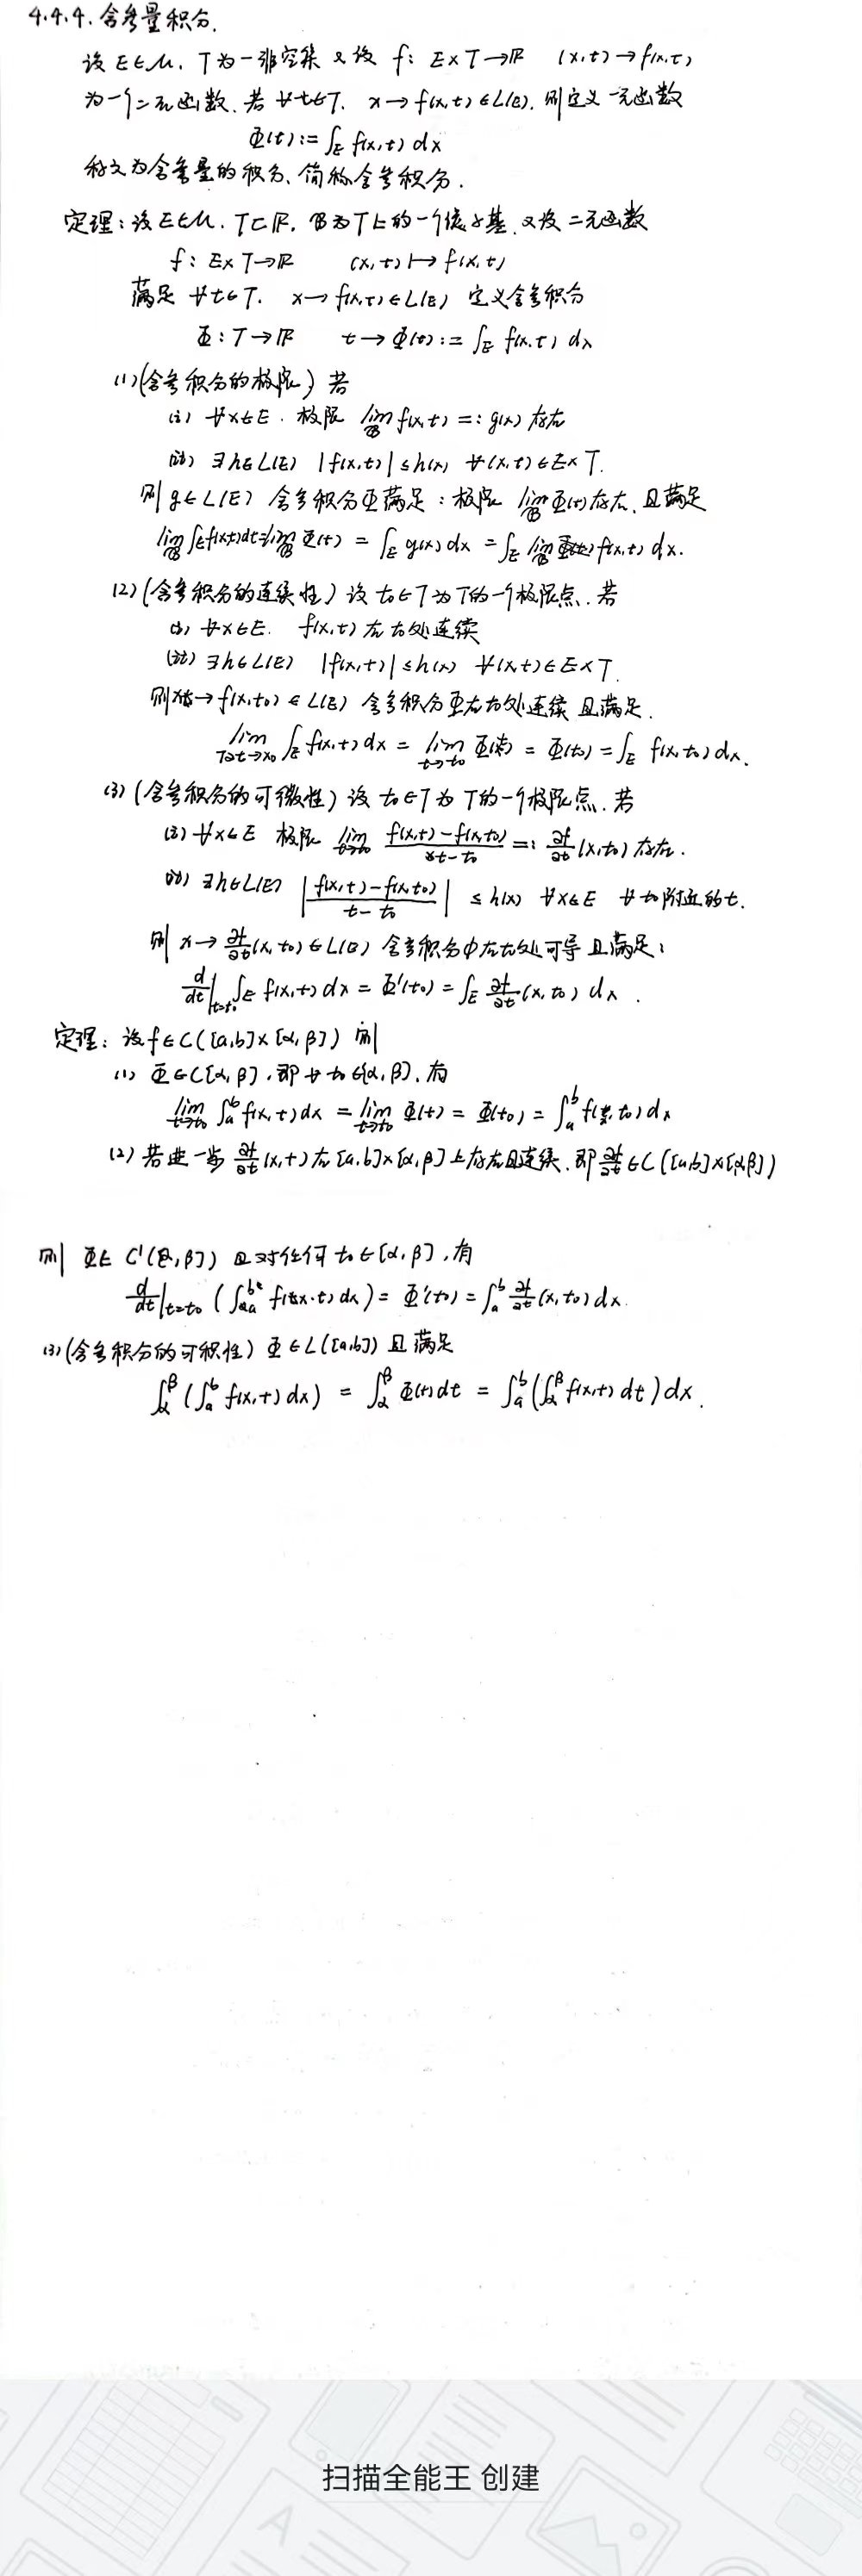 4.4.4. 含参量积分.
设 E∈M, T为一非空集 又设 f: E×T→ℝ (x,t)→f(x,t)
为一个二元函数. 若 ∀t∈T, x→f(x,t)∈L(E), 则定义一元函数
Φ(t):=∫_E f(x,t) dx
称之为含参量的积分、简称含参积分.
定理: 设E∈M, T⊂ℝ, 𝓑为T上的一个滤子基. 又设二元函数
f: E×T→ℝ (x,t)↦f(x,t)
满足 ∀t∈T. x→f(x,t)∈L(E) 定义含参积分
Φ: T→ℝ t→Φ(t):=∫_E f(x,t) dx
(1)(含参积分的极限) 若
(i) ∀x∈E. 极限 lim_𝓑 f(x,t)=:g(x) 存在
(ii) ∃h∈L(E) |f(x,t)|≤h(x) ∀(x,t)∈E×T.
则g∈L(E) 含参积分Φ满足: 极限 lim_𝓑 Φ(t)存在, 且满足
lim_𝓑 ∫_E f(x,t)dt = lim_𝓑 Φ(t) = ∫_E g(x) dx = ∫_E lim_𝓑 f(x,t) dx.
(2)(含参积分的连续性) 设 t₀∈T为T的一个极限点. 若
(i) ∀x∈E. f(x,t)在t₀处连续
(ii) ∃h∈L(E) |f(x,t)|≤h(x) ∀(x,t)∈E×T.
则x→f(x,t₀)∈L(E) 含参积分Φ在t₀处连续 且满足.
lim_{T∋t→x₀} ∫_E f(x,t) dx = lim_{t→t₀} Φ(t) = Φ(t₀) = ∫_E f(x,t₀) dx.
(3)(含参积分的可微性) 设 t₀∈T为T的一个极限点. 若
(i) ∀x∈E 极限 lim_{t→t₀} (f(x,t)-f(x,t₀))/(t-t₀) =: ∂f/∂t (x,t₀) 存在.
(ii) ∃h∈L(E) |(f(x,t)-f(x,t₀))/(t-t₀)| ≤h(x) ∀x∈E ∀t₀附近的t.
则 x→∂f/∂t (x,t₀)∈L(E) 含参积分Φ在t₀处可导 且满足:
d/dt|_{t=t₀} ∫_E f(x,t) dx = Φ'(t₀) = ∫_E ∂f/∂t (x,t₀) dx.
定理: 设f∈C([a,b]×[α,β]) 则
(1) Φ∈C[α,β], 即∀t₀∈[α,β], 有
lim_{t→t₀} ∫_a^b f(x,t) dx = lim_{t→t₀} Φ(t) = Φ(t₀) = ∫_a^b f(x,t₀) dx
(2) 若进一步 ∂f/∂t (x,t)在[a,b]×[α,β]上存在且连续, 即∂f/∂t∈C([a,b]×[α,β])
则 Φ∈C'([α,β]) 且对任何t₀∈[α,β], 有
d/dt|_{t=t₀} (∫_a^b f(x,t) dx) = Φ'(t₀) = ∫_a^b ∂f/∂t (x,t₀) dx.
(3)(含参积分的可积性) Φ∈L([a,b]) 且满足
∫_α^β (∫_a^b f(x,t) dx) = ∫_α^β Φ(t)dt = ∫_a^b (∫_α^β f(x,t) dt) dx.
扫描全能王 创建